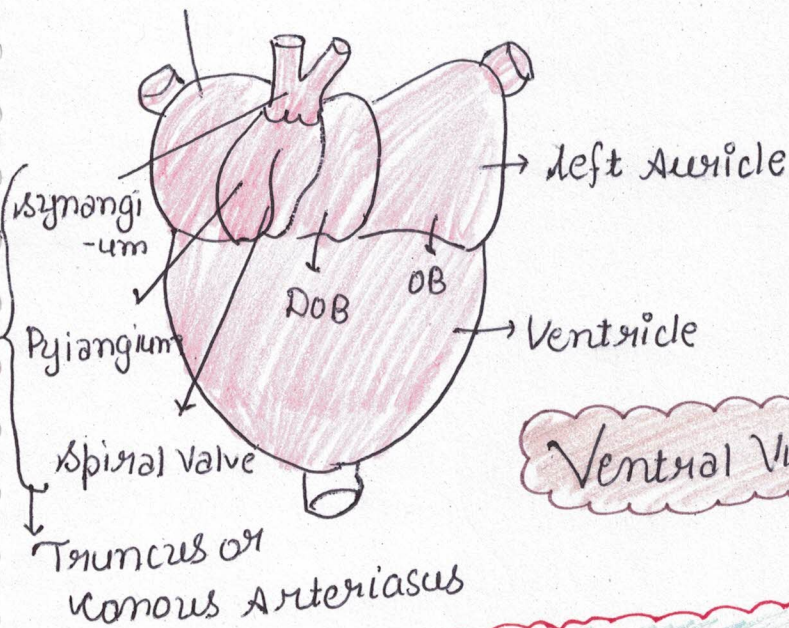 Left Auricle
Synangi
-um
DOB
OB
Pyiangium
Ventricle
Spiral Valve
Ventral Vi
Truncus or
Konous Arteriasus